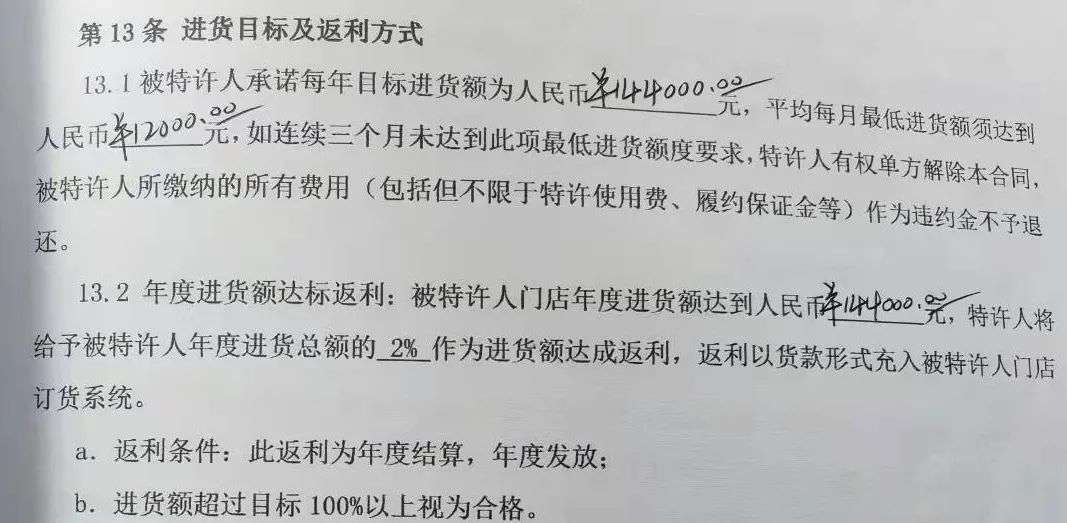 第13条 进货目标及返利方式
13.1 被特许人承诺每年目标进货额为人民币¥144000.00元，平均每月最低进货额须达到
人民币¥12000.00元，如连续三个月未达到此项最低进货额度要求，特许人有权单方解除本合同，
被特许人所缴纳的所有费用（包括但不限于特许使用费、履约保证金等）作为违约金不予退
还。
13.2 年度进货额达标返利：被特许人门店年度进货额达到人民币¥144000.00元，特许人将
给予被特许人年度进货总额的 2% 作为进货额达成返利，返利以货款形式充入被特许人门店
订货系统。
a. 返利条件：此返利为年度结算，年度发放；
b. 进货额超过目标 100%以上视为合格。